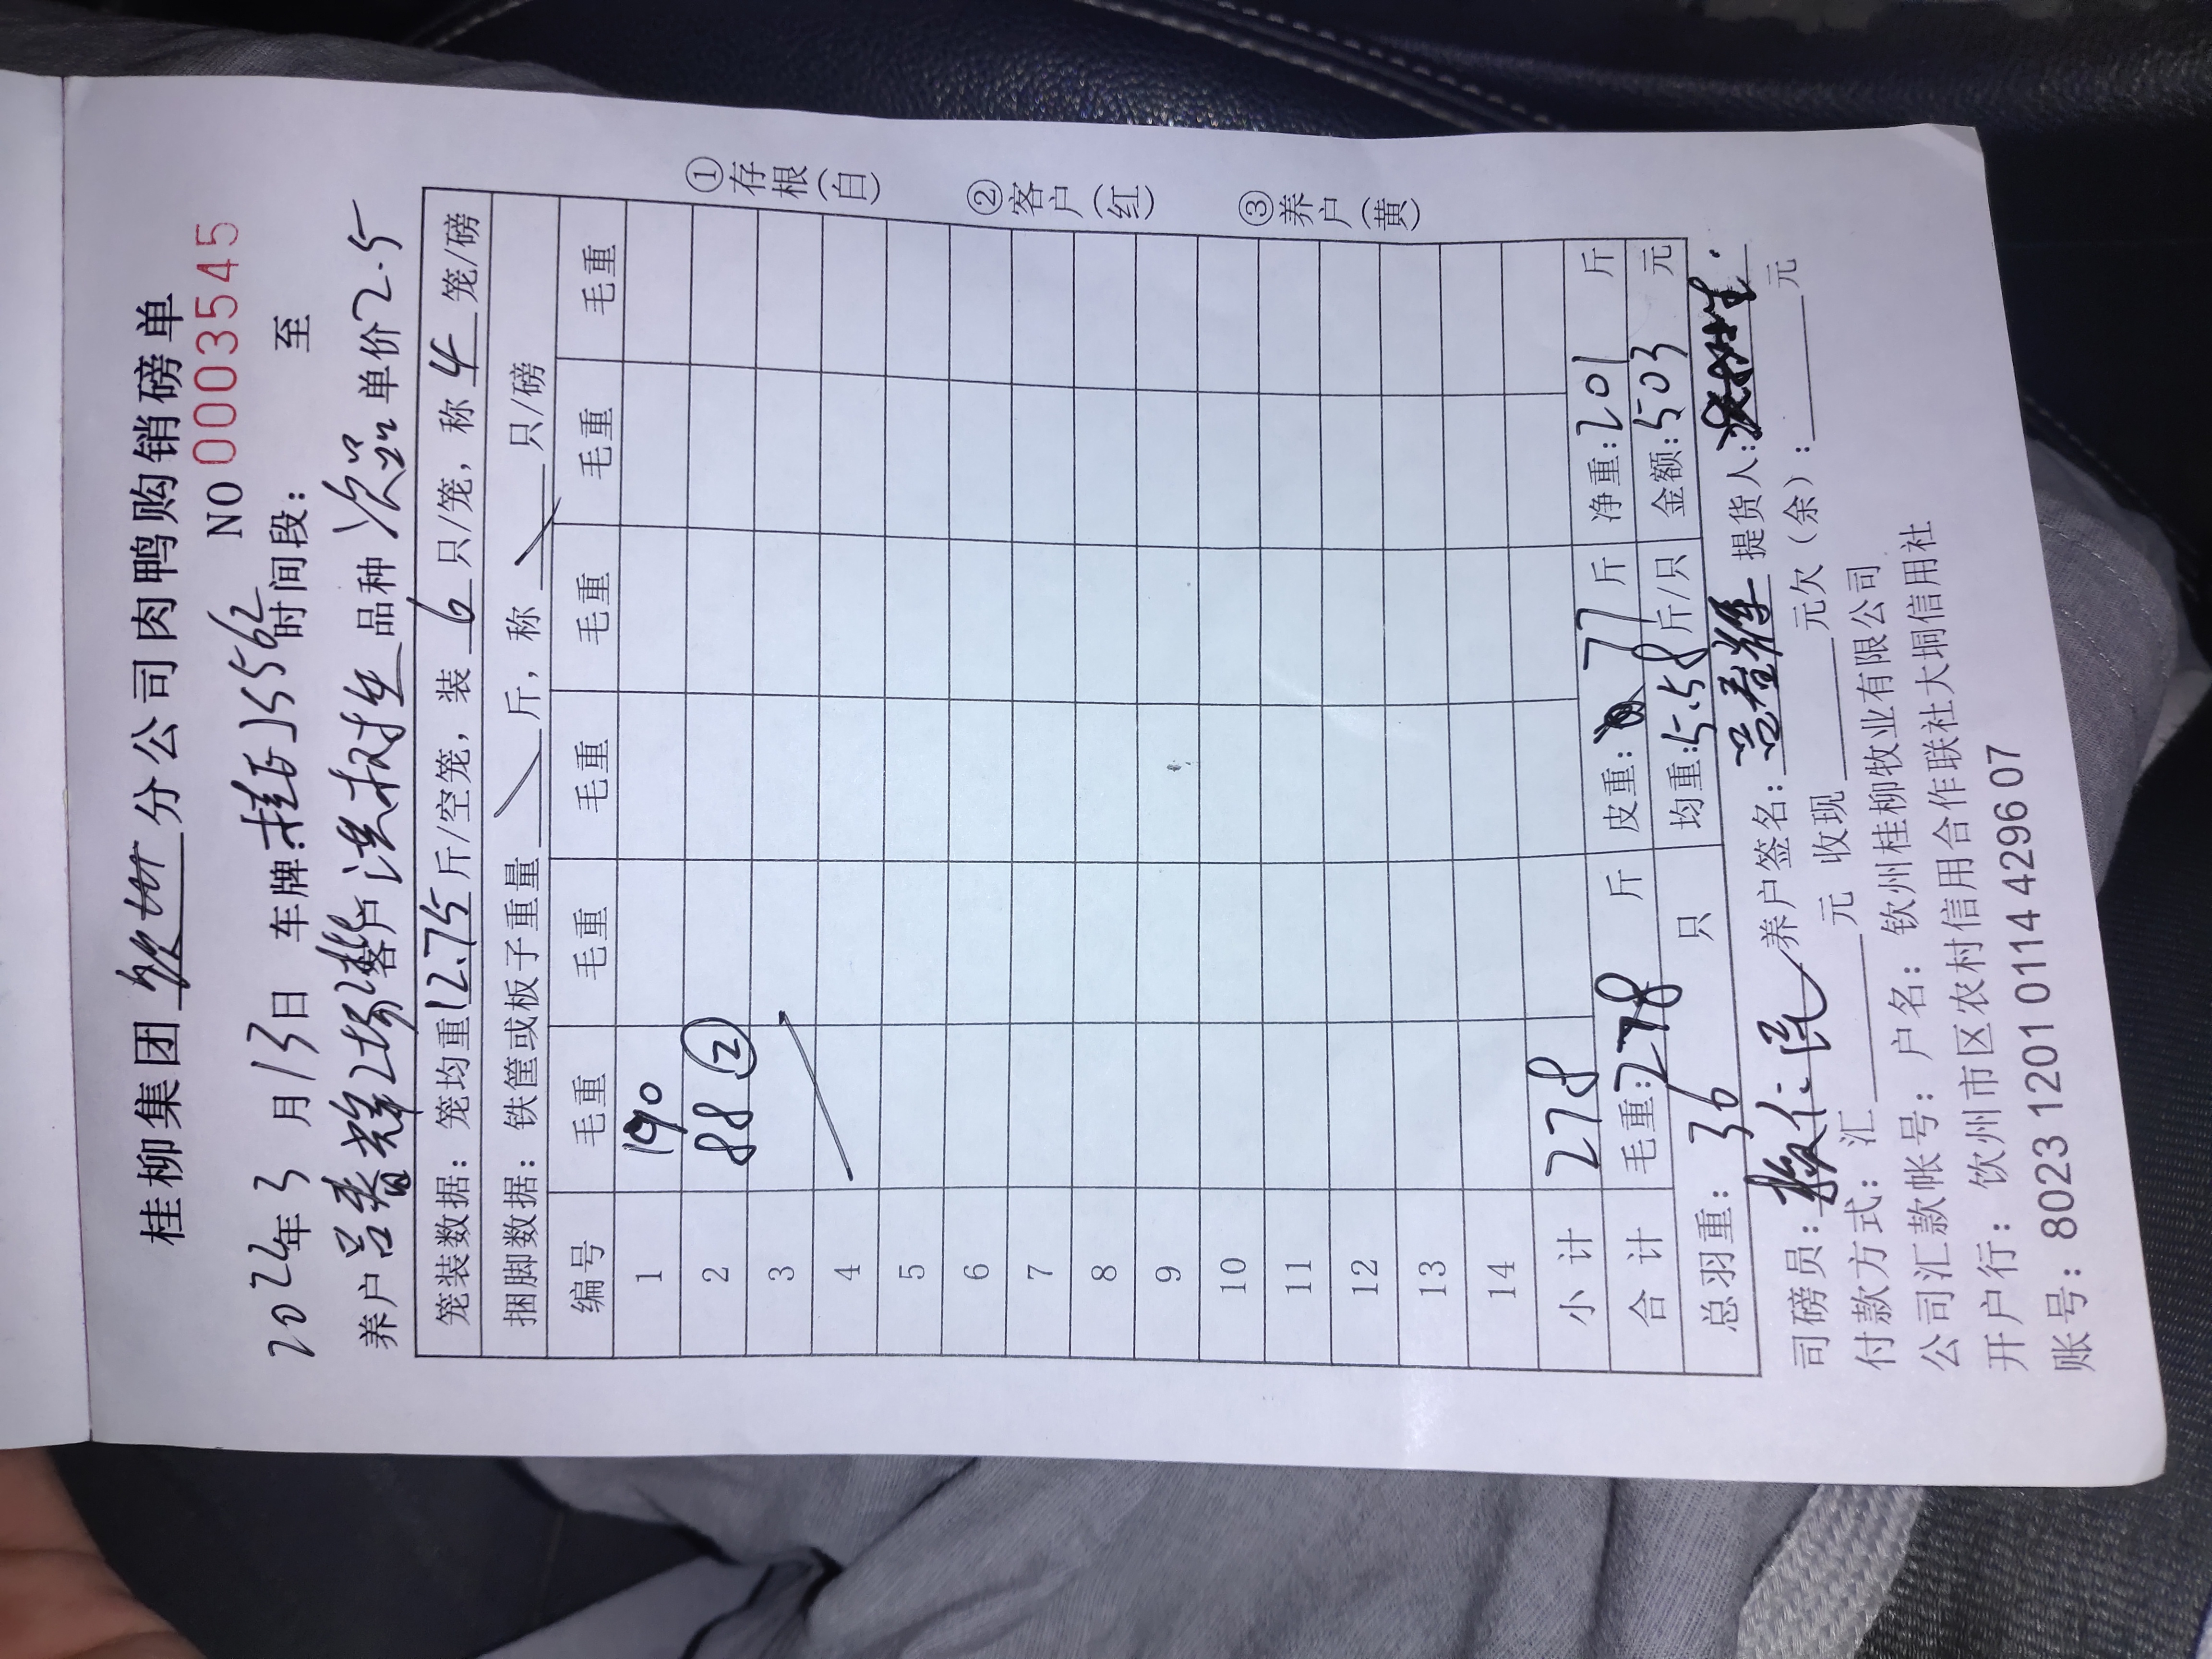 桂柳集团 钦州 分公司肉鸭购销磅单
NO 0003545
2022年3月13日 车牌:桂 J5562 时间段: 至
养户 吕春辉2场 客户 洪树生 品种 次品 单价 2.5
笼装数据: 笼均重 12.75 斤/空笼, 装 6 只/笼, 称 4 笼/磅
捆脚数据: 铁筐或板子重量 / 斤, 称 / 只/磅
编号 毛重 毛重 毛重 毛重 毛重 毛重
1 190
2 88 ②
3
4
5
6
7
8
9
10
11
12
13
14
小计 278
合计 毛重:278 斤 皮重: 77 斤 净重:201 斤
总羽重: 36 只 均重:5.58斤/只 金额:503 元
司磅员: 养户签名: 吕春辉 提货人:
付款方式: 汇 元 收现 元欠(余): 元
公司汇款帐号: 户名: 钦州桂柳牧业有限公司
开户行: 钦州市区农村信用合作联社大垌信用社
账号: 8023 1201 0114 4296 07
①存根(白)
②客户(红)
③养户(黄)